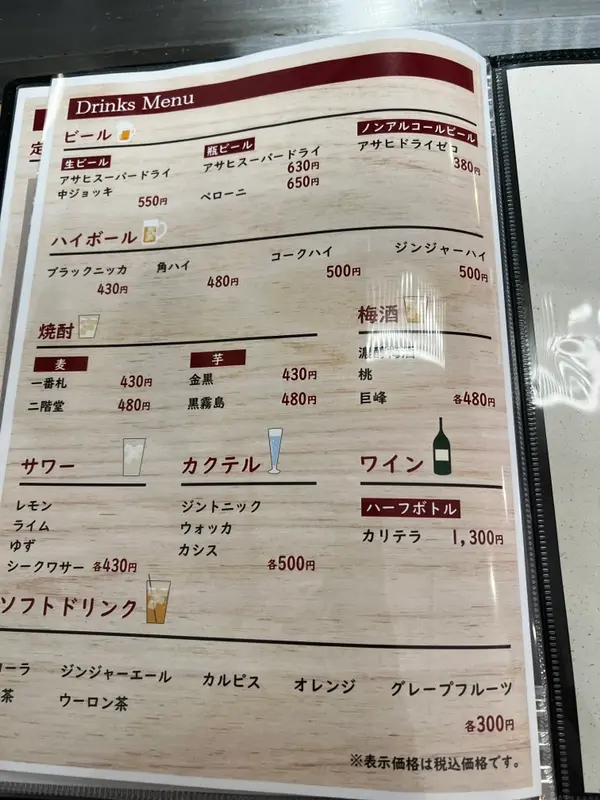 Drinks Menu
定
ビール
生ビール
アサヒスーパードライ
中ジョッキ
550円
瓶ビール
アサヒスーパードライ
630円
650円
ペローニ
ノンアルコールビール
アサヒドライゼロ
380円
ハイボール
ブラックニッカ
430円
角ハイ
480円
コークハイ
500円
ジンジャーハイ
500円
焼酎
麦
一番札 430円
二階堂 480円
芋
金黒 430円
黒霧島 480円
梅酒
濃醇梅酒
桃
巨峰 各480円
サワー
レモン
ライム
ゆず
シークワサー 各430円
カクテル
ジントニック
ウォッカ
カシス
各500円
ワイン
ハーフボトル
カリテラ 1,300円
ソフトドリンク
ーラ ジンジャーエール カルピス オレンジ グレープフルーツ
茶 ウーロン茶
各300円
※表示価格は税込価格です。